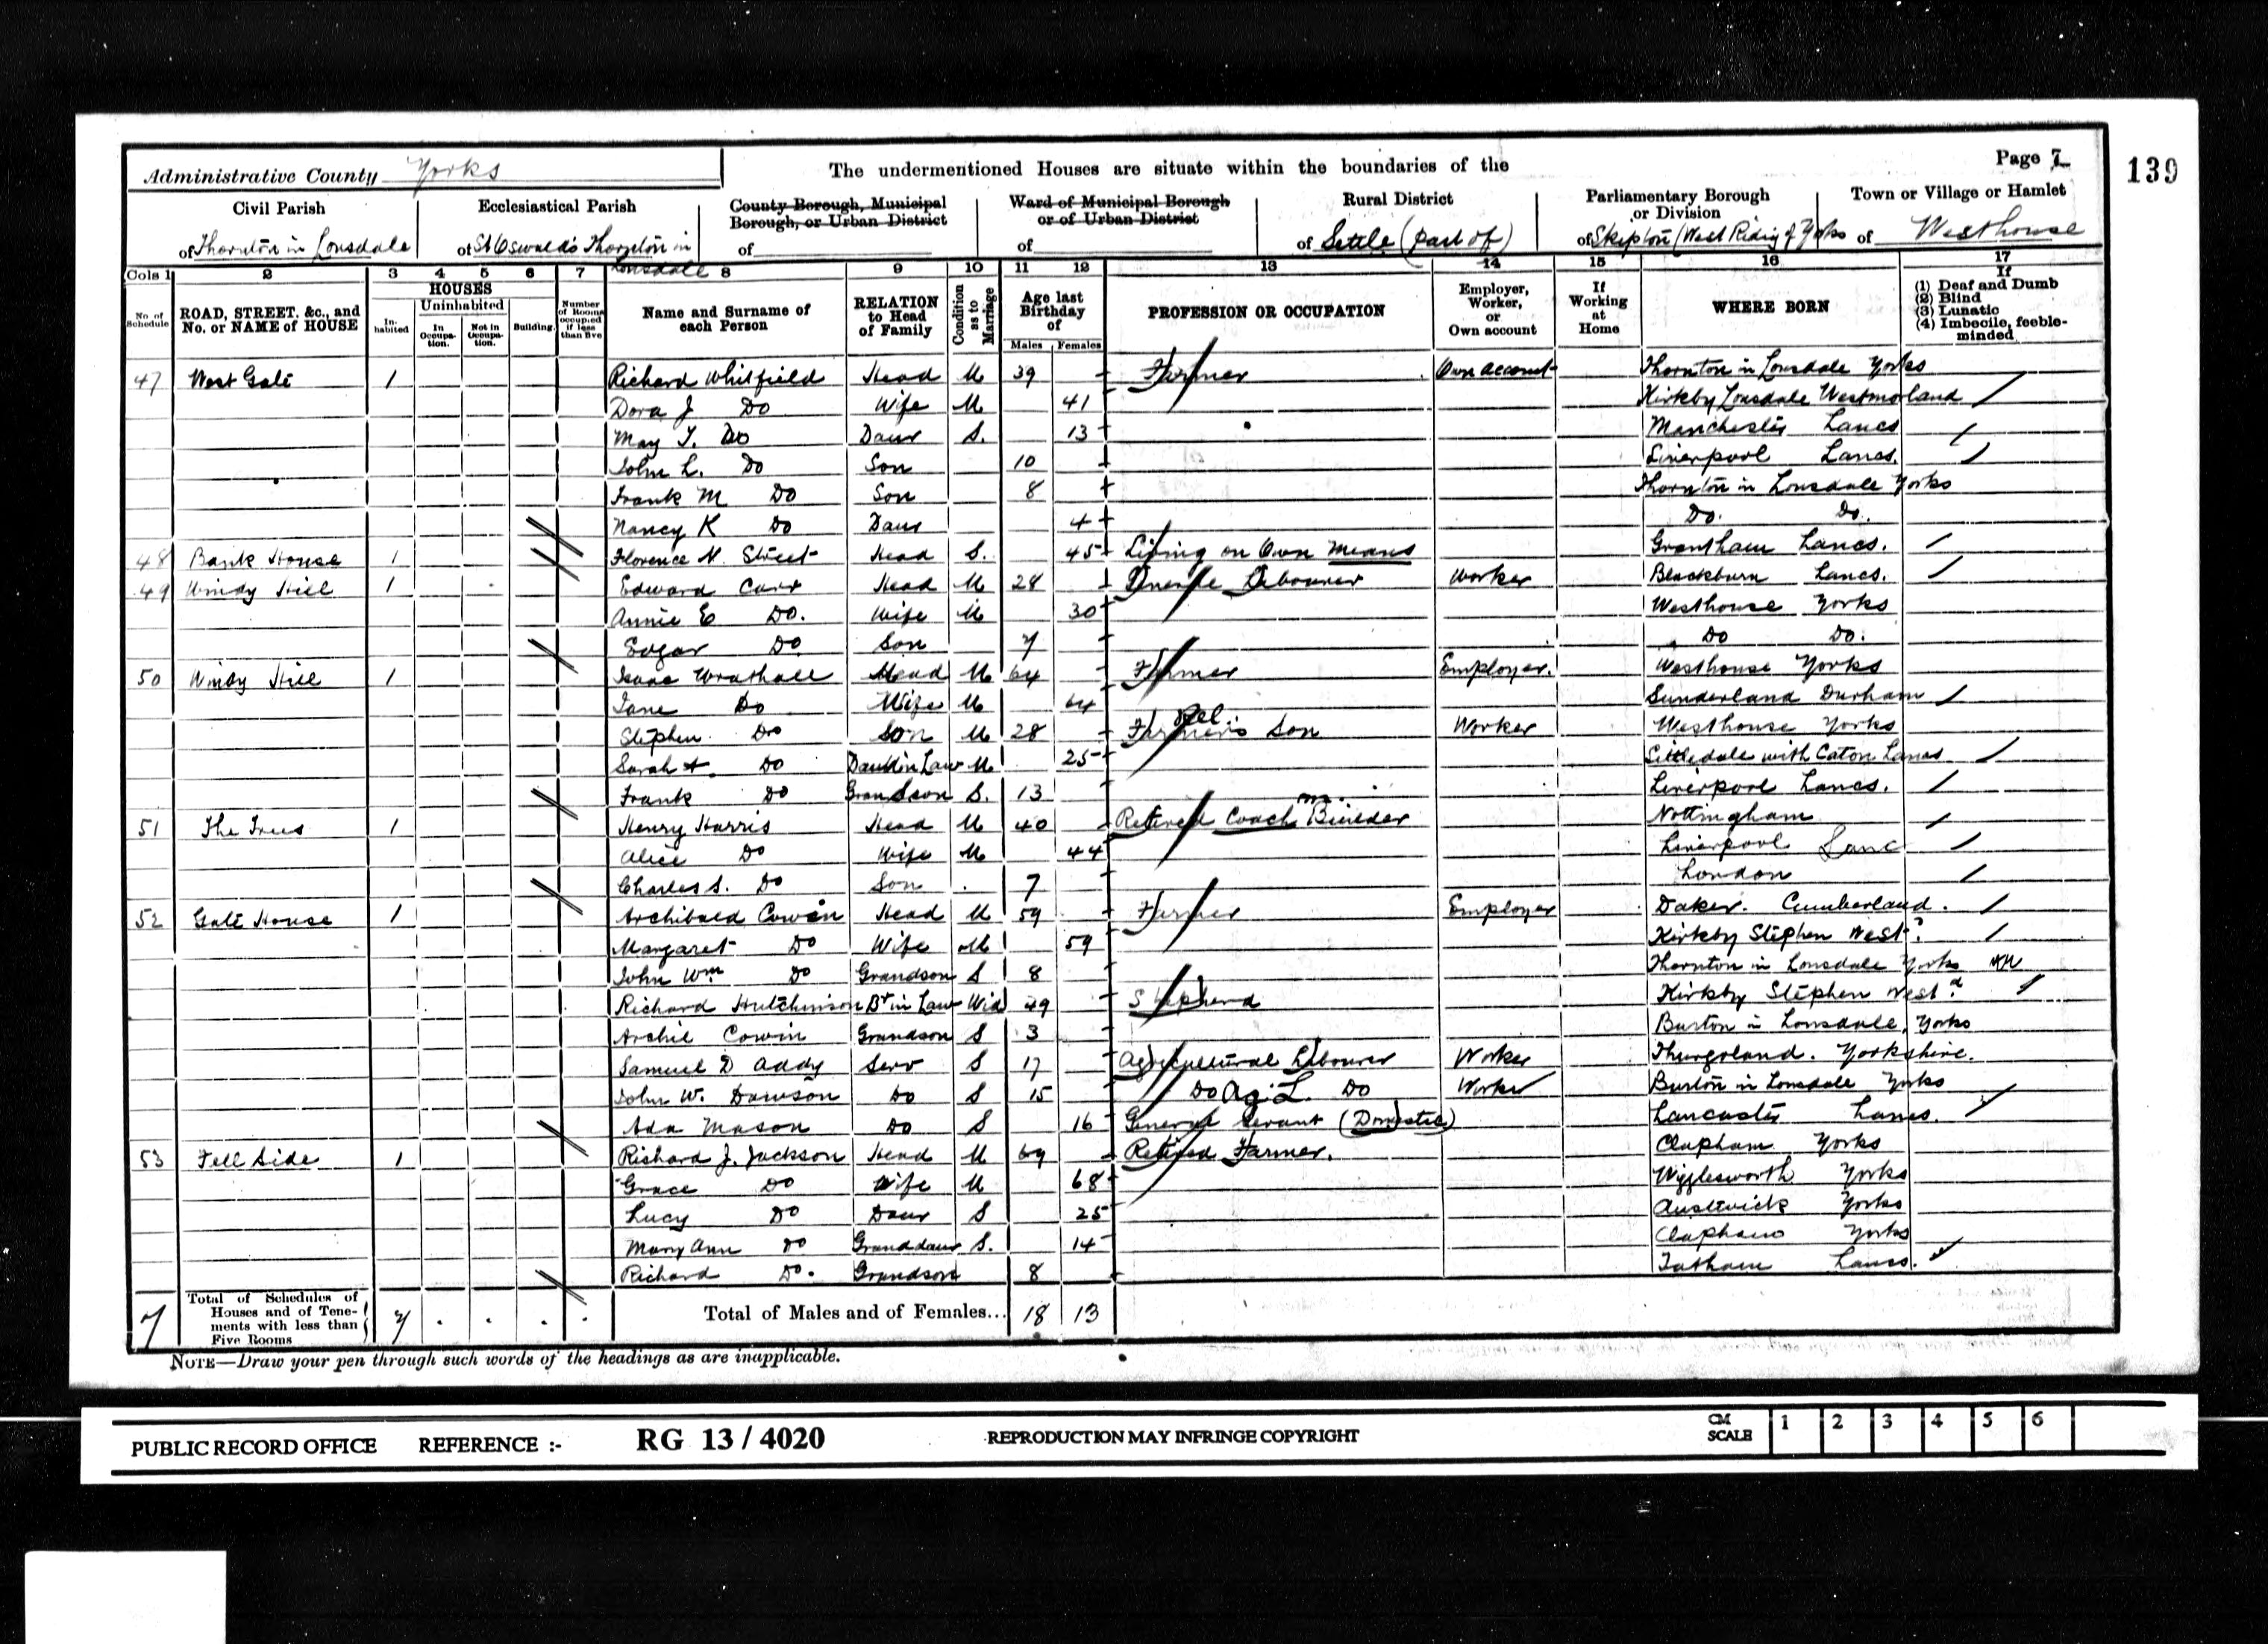 Administrative County Yorks
The undermentioned Houses are situate within the boundaries of the
Page 7
139
Civil Parish
of Thornton in Lonsdale
Ecclesiastical Parish
of St Oswald's Thornton in Lonsdale
County Borough, Municipal Borough, or Urban District
of
Ward of Municipal Borough or of Urban District
of
Rural District
of Settle (part of)
Parliamentary Borough or Division
of Skipton (West Riding of Yorks
Town or Village or Hamlet
of Westhouse
Cols 1 2 3 4 5 6 7 8 9 10 11 12 13 14 15 16 17
No. of Schedule
ROAD, STREET, &c., and No. or NAME of HOUSE
HOUSES
Inhabited
Uninhabited
In Occupation.
Not in Occupation.
Building.
Number of Rooms occupied if less than five
Name and Surname of each Person
RELATION to Head of Family
Condition as to Marriage
Age last Birthday of
Males Females
PROFESSION OR OCCUPATION
Employer, Worker, or Own account
If Working at Home
WHERE BORN
If
(1) Deaf and Dumb
(2) Blind
(3) Lunatic
(4) Imbecile, feeble-minded
47 West Gate 1 Richard Whitfield Head M 39 Farmer Own account Thornton in Lonsdale Yorks
Dora J Do Wife M 41 Kirkby Lonsdale Westmorland
May T. Do Daur S. 13 Manchester Lancs
John L. Do Son 10 Liverpool Lancs.
Frank M Do Son 8 Thornton in Lonsdale Yorks
Nancy K Do Daur 4 Do. Do.
48 Bank House 1 Florence N. Street Head S. 45 Living on Own Means Grantham Lancs.
49 Windy Hill 1 Edward Carr Head M 28 Labourer Worker Blackburn Lancs.
Annie E Do. Wife M 30 Westhouse Yorks
Edgar Do Son 7 Do Do.
50 Windy Hill 1 Isaac Wrathall Head M 64 Farmer Employer. Westhouse Yorks
Jane Do Wife M 64 Sunderland Durham
Stephen Do Son M 28 Farmer's Son Rel. Worker Westhouse Yorks
Sarah A. Do Daur in Law M 25 Littledale with Caton Lancs
Frank Do Grandson S. 13 Liverpool Lancs.
51 The Trees 1 Henry Harris Head M 40 Retired Coach Builder m. Nottingham
Alice Do Wife M 44 Liverpool Lanc
Charles S. Do Son 7 London
52 Gale House 1 Archibald Cowin Head M 59 Farmer Employer Daker. Cumberland.
Margaret Do Wife M 59 Kirkby Stephen West
John Wm Do Grandson S 8 Thornton in Lonsdale Yorks
Richard Hutchinson Br in Law Wid 49 Shepherd Kirkby Stephen West
Archie Cowin Grandson S 3 Burton in Lonsdale, Yorks
Samuel D Addy Serv S 17 Agricultural Labourer Worker Thurgoland. Yorkshire.
John W. Dawson Do S 15 Do Ag. L. Do Worker Burton in Lonsdale Yorks
Ada Mason Do S 16 General Servant (Domestic) Lancaster Lancs.
53 Fell Side 1 Richard J. Jackson Head M 69 Retired Farmer. Clapham Yorks
Grace Do Wife M 68 Wigglesworth Yorks
Lucy Do Daur S 25 Austwick Yorks
Mary Ann Do Granddaur S. 14 Clapham Yorks
Richard Do. Grandson 8 Tatham Lancs.
7 Total of Schedules of Houses and of Tenements with less than Five Rooms 7 Total of Males and of Females... 18 13
NOTE—Draw your pen through such words of the headings as are inapplicable.
PUBLIC RECORD OFFICE REFERENCE :- RG 13 / 4020 REPRODUCTION MAY INFRINGE COPYRIGHT CM SCALE 1 2 3 4 5 6